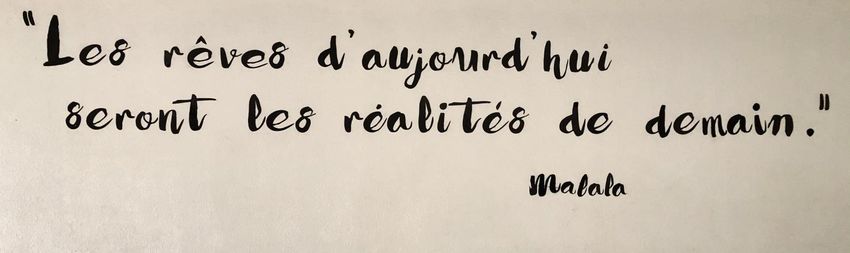 "Les rêves d'aujourd'hui
seront les réalités de demain."
Malala